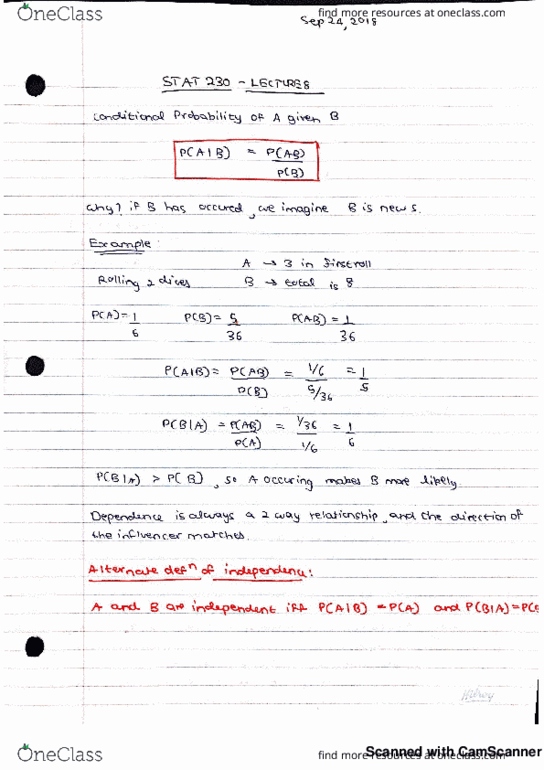 OneClass
find more resources at oneclass.com
Sep 24, 2018
STAT 230 - LECTURE 8
Conditional Probability of A given B
P(A|B) = P(AB)
P(B)
Why? if B has occured, we imagine B is new S.
Example:
A → 3 in first roll
Rolling 2 dices B → total is 8
P(A)=1 P(B)=5 P(AB)=1
6 36 36
P(A|B)= P(AB) = 1/6 = 1
P(B) 5/36 5
P(B|A) = P(AB) = 1/36 = 1
P(A) 1/6 6
P(B|A) > P(B), so A occuring makes B more likely
Dependence is always a 2 way relationship, and the direction of
the influencer matches.
Alternate defn of independency:
A and B are independent iff P(A|B) = P(A) and P(B|A)=P(B
Hilroy
OneClass
find more resources at oneclass.com
Scanned with CamScanner